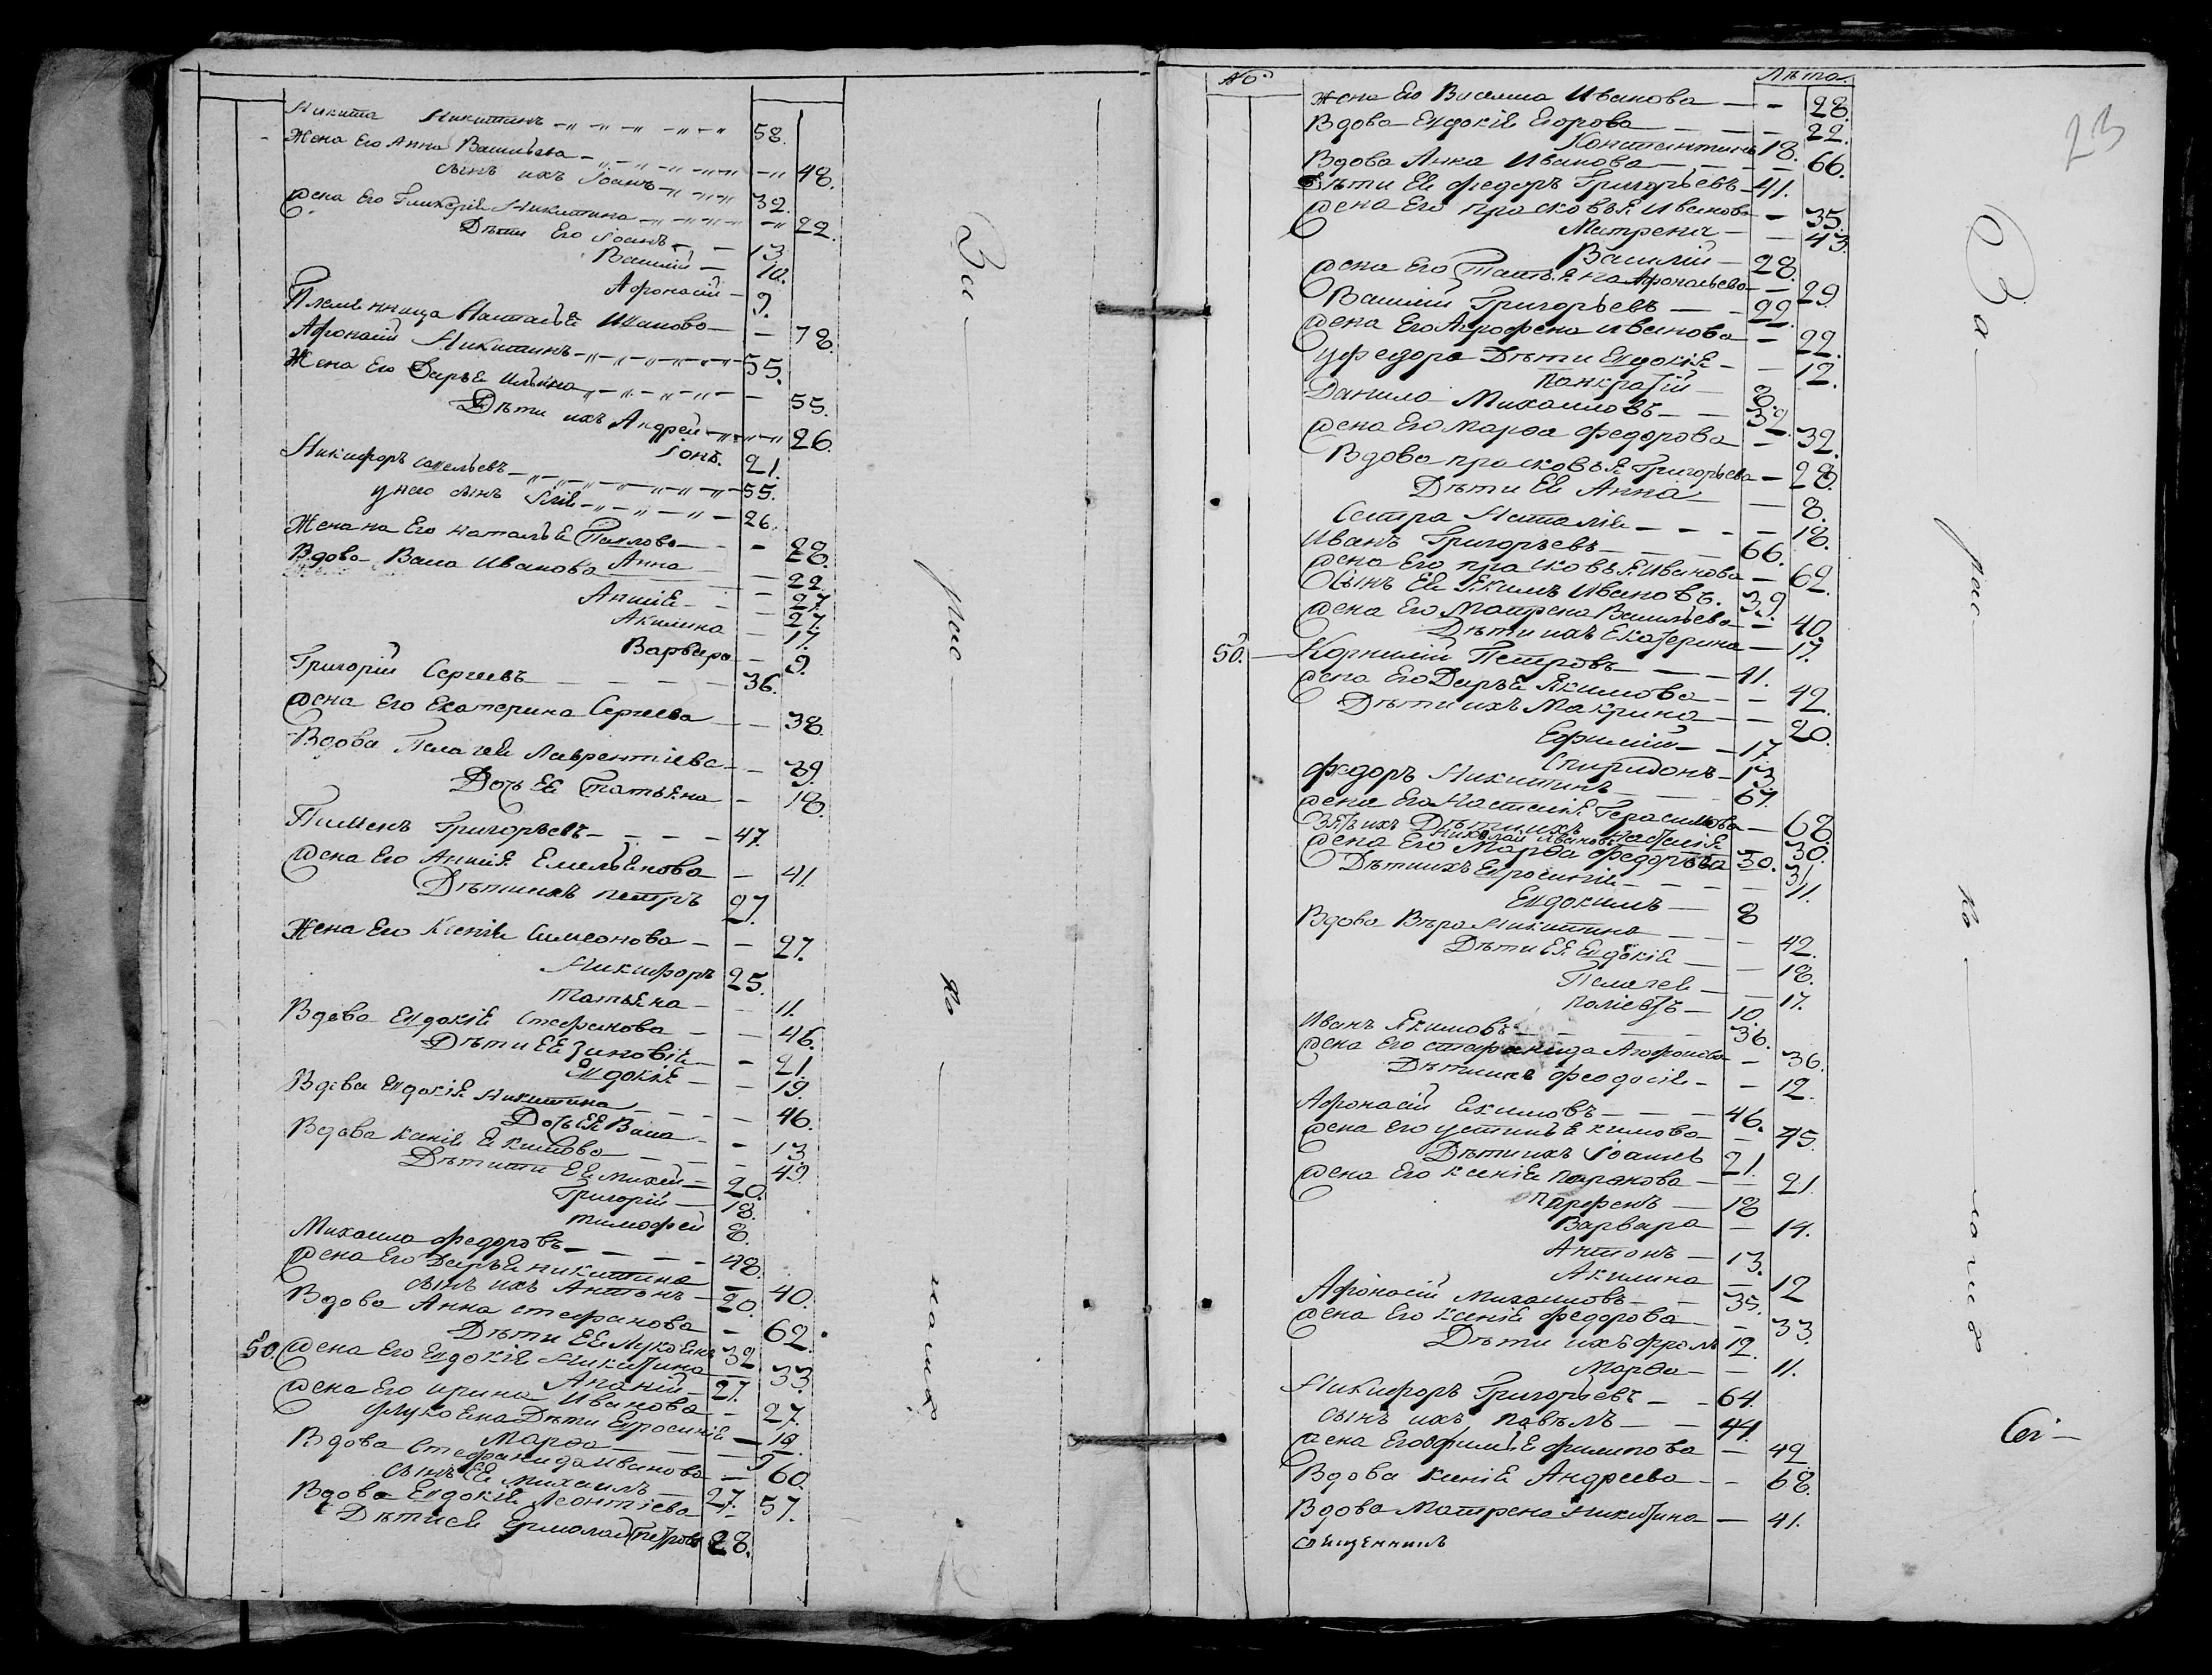 Никита Никитинъ 58.
Жена Его Анна Васильева 48.
сынъ ихъ Іоаннъ 32.
Жена Его Гликерiя Никитина 22.
Дѣти Его Іоаннъ 13
Василій 10.
Афонасій 9.
Племянница Наталья Иванова 78.
Афонасій Никитинъ 55.
Жена Его Дарья Ильина 55.
Дѣти ихъ Андрей 26
Іонъ. 21.
Никифоръ Савельевъ 55.
у него сынъ Илія 26.
Жена на Его Наталья Павлова 28.
Анна 22.
Вдова Васа Иванова 27.
Анисія 27.
Акилина 17.
Варвара 9.
Григорій Сергеевъ 36.
Жена Его Екатерина Сергеева 38.
Вдова Пелагея Лаврентіева 39.
Дочь Ея Татьяна 18.
Пименъ Григорьевъ 47.
Жена Его Анисія Емельянова 41.
Дѣти ихъ Петръ 27.
Жена Его Ксенія Симеонова 27.
Никифоръ 25.
Татьяна 11.
Вдова Евдокія Стефанова 46.
Дѣти Ея Зиновія 21.
Евдокія 19.
Вдова Евдокія Никитина 46.
Дочь Ея Васа 13
Вдова Ксенія Екимова 49.
Дѣтити Ея Михей 20.
Григорій 18.
Тимофей 8.
Михаила Федоровъ 48.
Жена Его Дарья Никитина 40.
сынъ ихъ Антонъ 20.
Вдова Анна Стефанова 62.
Дѣти Ея Лукоянъ 32
50. Жена Его Евдокія Никитина 33.
Ананій 27.
Жена Его Ирина Иванова 27.
у Лукояна Дѣти Ефросинія 12.
Марѳа 9
Вдова Стефанида Иванова 60.
сынъ Ея Михаилъ 27.
Вдова Евдокія Леонтіева 57.
Дѣти Ея Ермолай Петровъ 28.
За рас ко
№ Лѣта.
23
Жена Его Васелиса Иванова 28.
Вдова Евдокія Егорова 22.
Константинъ 18.
Вдова Анна Иванова 66.
Дѣти Ея Федоръ Григорьевъ 41.
Жена Его Прасковья Иванова 35.
Матрена 43.
Василій 28.
Жена Его Татьяна Афонасьева 29
Василій Григорьевъ 22.
Жена Его Агрофена Иванова 22.
у Федора Дѣти Евдокія 12.
Панкратій 8.
Данило Михаиловъ 32.
Жена Его Марѳа Федорова 32.
Вдова Прасковья Григорьева 28.
Дѣти Ея Анна 8.
Сестра Наталія 18.
Иванъ Григорьевъ 66.
Жена Его Прасковья Иванова 62.
Сынъ Ея Якимъ Ивановъ. 39.
Жена Его Матрена Васильева 40
Дѣти ихъ Екатерина 17.
50. Корнилій Петровъ 41.
Жена Его Дарья Якимова 42.
Дѣти ихъ Макрина 20.
Ефимій 17
Спиридонъ 13.
Федоръ Никитинъ 67.
Жена Его Настасія Герасимова 68.
Дѣти ихъ Настасія 30.
Зять ихъ Николай Ивановъ 30.
Жена Его Марѳа Федорова 31
Дѣти ихъ Ефросинія 11.
Евдокимъ 8
Вдова Вѣра Никитина 42.
Дѣти Ея Евдокія 18.
Пелагея 17.
Поліевтъ 10.
Иванъ Якимовъ 36.
Жена Его Стефанида Агофонова 36.
Дѣти ихъ Феодосія 12.
Афонасій Екимовъ 46.
Жена Его Устинья Екимова 45.
Дѣти ихъ Іоаннъ 21.
Жена Его Ксенія 21.
Парфенъ 18
Варвара 14.
Антонъ 13.
Акилина 12
Афонасій Михаиловъ 35.
Жена Его Ксенія Федорова 33.
Дѣти ихъ Фролъ 12.
Марѳа 11.
Никифоръ Григорьевъ 64.
сынъ ихъ Павелъ 44.
Жена Его Ефимія Филипова 42
Вдова Ксенія Андреева 68.
Вдова Матрена Никитина 41.
Священникъ
За рас ко